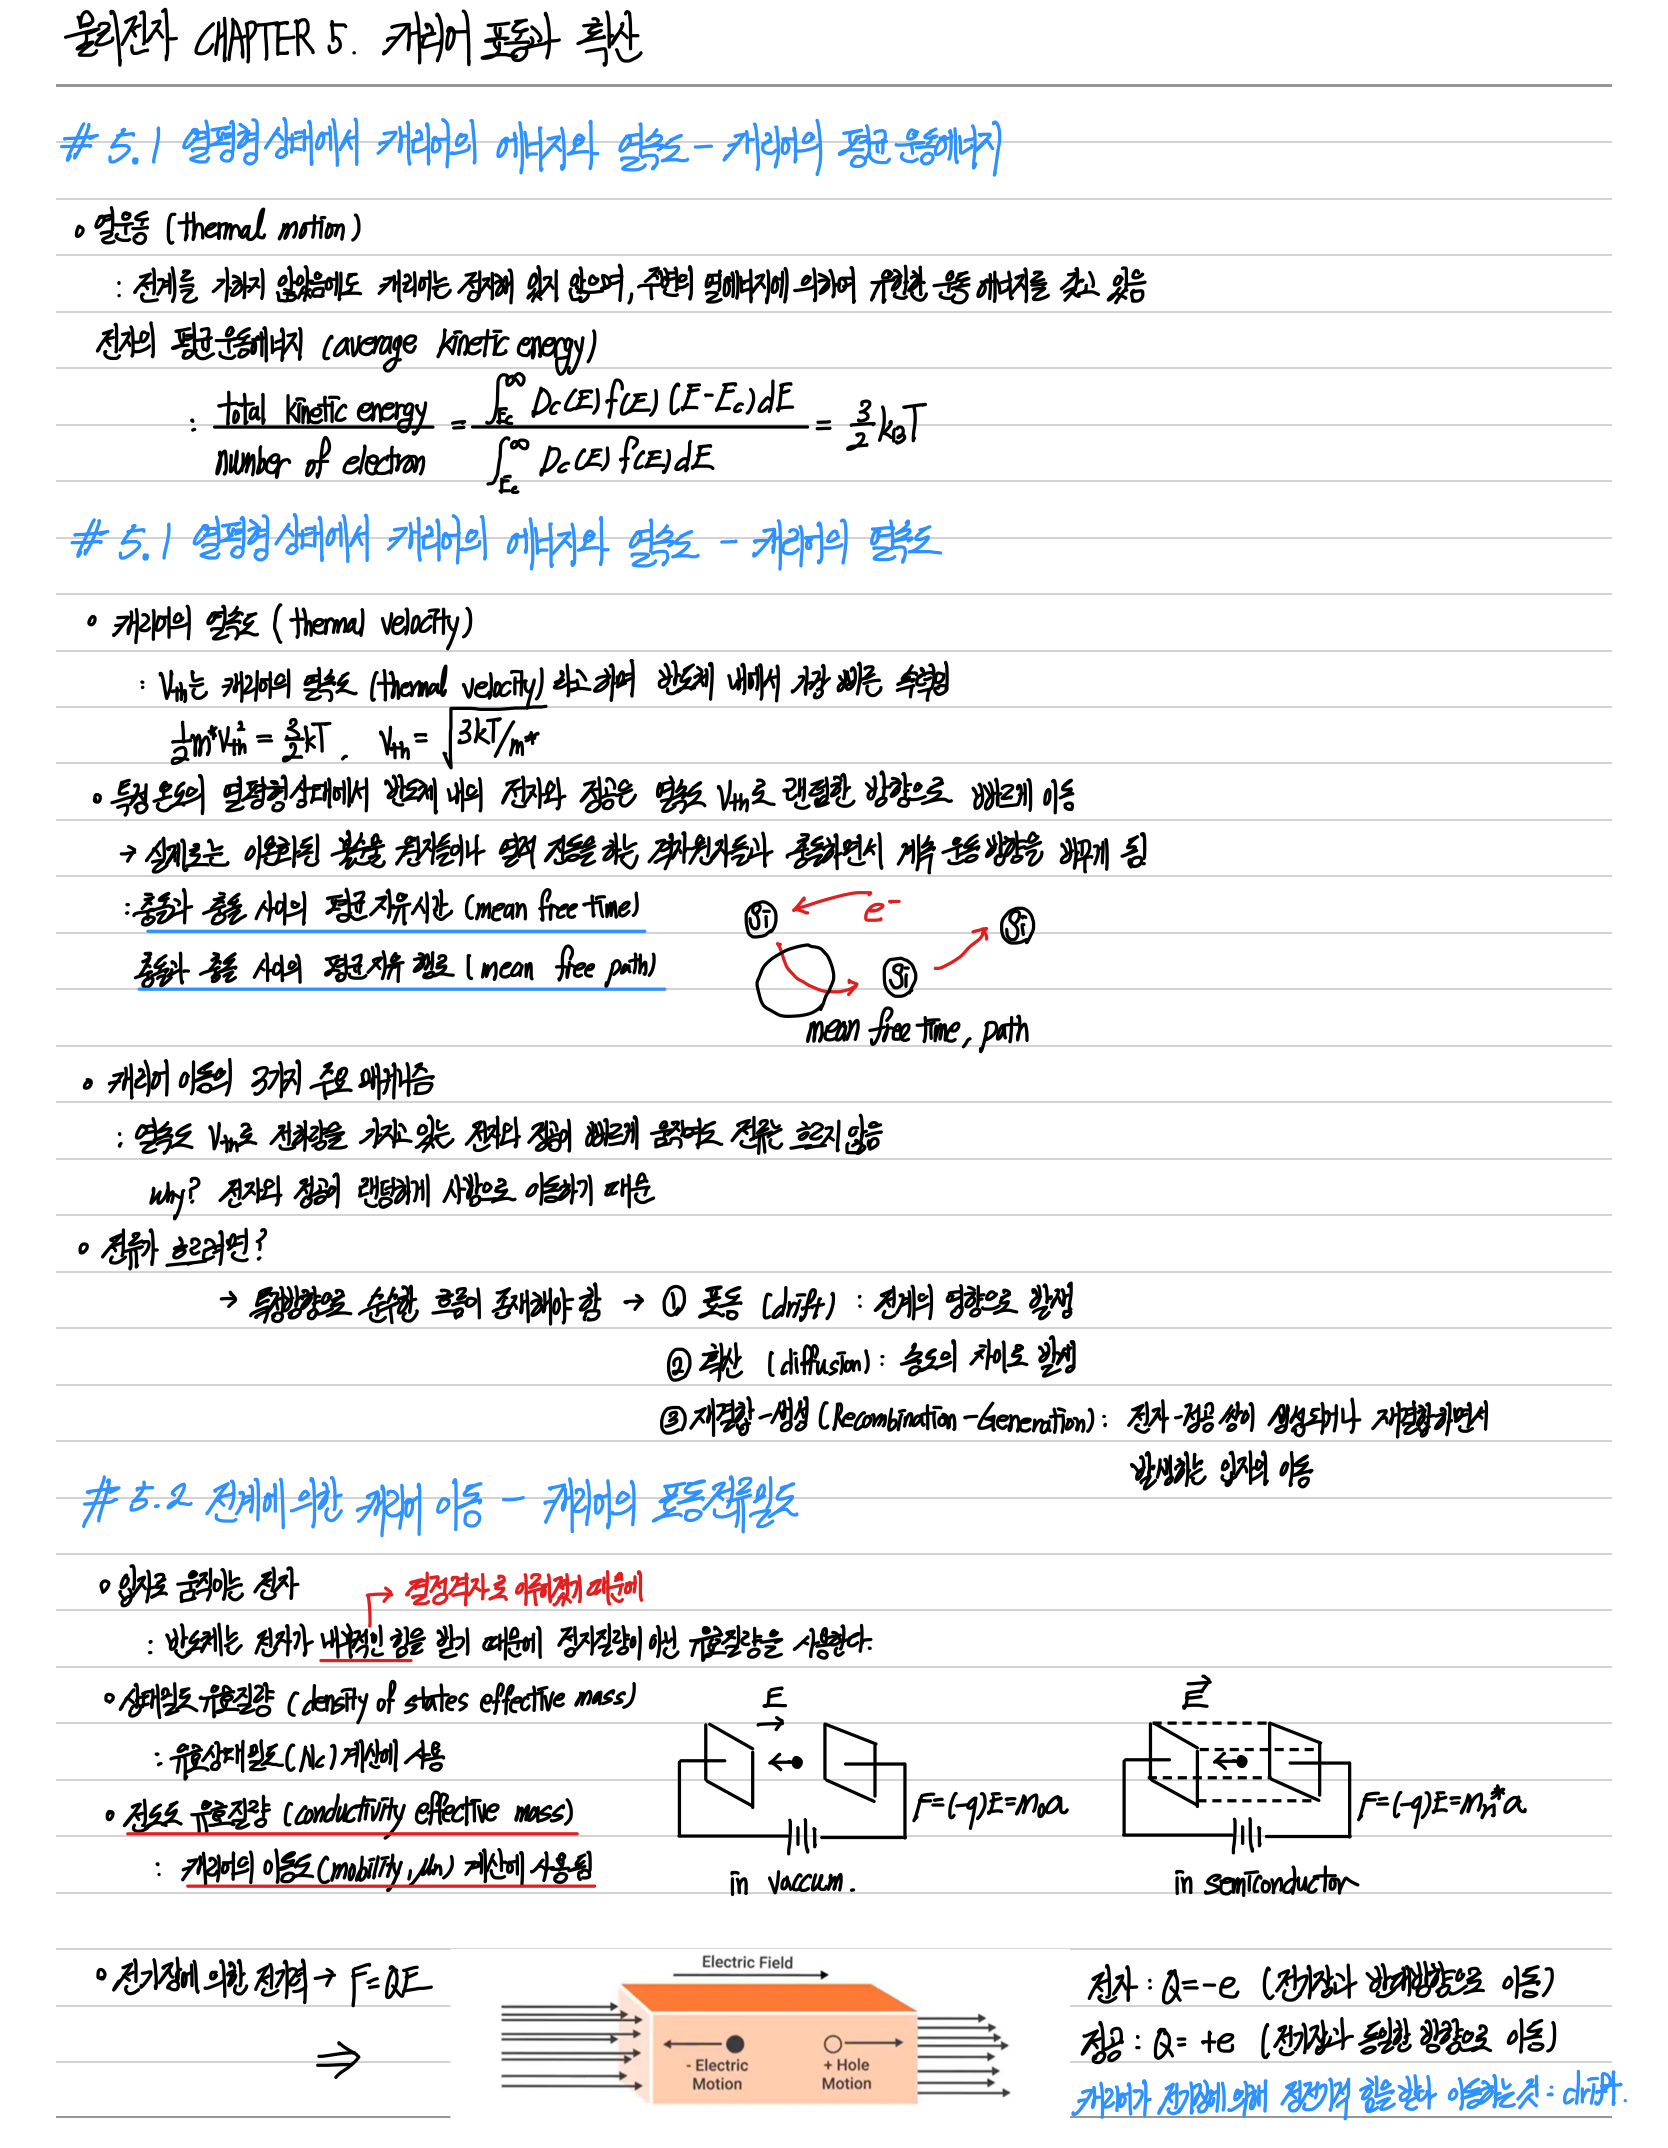 물리전자 CHAPTER 5. 캐리어 표동과 확산
# 5.1 열평형상태에서 캐리어의 에너지와 열속도 - 캐리어의 평균 운동에너지
∘ 열운동 (thermal motion)
: 전계를 가하지 않았음에도 캐리어는 정지해 있지 않으며, 주변의 열에너지에 의하여 유한한 운동 에너지를 갖고 있음
전자의 평균 운동에너지 (average kinetic energy)
: total kinetic energy / number of electron = ∫_{Ec}^{∞} Dc(E) f(E) (E-Ec) dE / ∫_{Ec}^{∞} Dc(E) f(E) dE = 3/2 k_B T
# 5.1 열평형상태에서 캐리어의 에너지와 열속도 - 캐리어의 열속도
∘ 캐리어의 열속도 (thermal velocity)
: Vth는 캐리어의 열속도 (thermal velocity)라고 하며 반도체 내에서 가장 빠른 속력임
1/2 m* Vth² = 3/2 kT. Vth = √(3kT/m*)
∘ 특정 온도의 열평형상태에서 반도체 내의 전자와 정공은 열속도 Vth로 랜덤한 방향으로 빠르게 이동
→ 실제로는 이온화된 불순물 원자들이나 열적 진동을 하는 격자원자들과 충돌하면서 계속 운동 방향을 바꾸게 됨
: 충돌과 충돌 사이의 평균 자유시간 (mean free time)
충돌과 충돌 사이의 평균 자유 행로 (mean free path)
Si e⁻ Si
Si
mean free time, path
∘ 캐리어 이동의 3가지 주요 매커니즘
: 열속도 Vth로 전하량을 가지고 있는 전자와 정공이 빠르게 움직여도 전류는 흐르지 않음
why? 전자와 정공이 랜덤하게 사방으로 이동하기 때문
∘ 전류가 흐르려면?
→ 특정방향으로 순수한 흐름이 존재해야 함 → ① 표동 (drift) : 전계의 영향으로 발생
② 확산 (diffusion) : 농도의 차이로 발생
③ 재결합-생성 (Recombination-Generation) : 전자-정공 쌍이 생성되거나 재결합하면서
발생하는 입자의 이동
# 5.2 전계에 의한 캐리어 이동 - 캐리어의 표동전류밀도
∘ 입자로 움직이는 전자
→ 결정격자로 이루어졌기 때문에
: 반도체는 전자가 내부적인 힘을 받기 때문에 정지질량이 아닌 유효질량을 사용한다.
∘ 상태밀도 유효질량 (density of states effective mass)
: 유효상태밀도(Nc) 계산에 사용
∘ 전도도 유효질량 (conductivity effective mass)
: 캐리어의 이동도(mobility, μn) 계산에 사용됨
E
F=(-q)E=m₀a
in vaccum.
E
F=(-q)E=mn*a
in semiconductor
∘ 전기장에 의한 전기력 → F=QE
⇒
Electric Field
- Electric Motion
+ Hole Motion
전자 : Q=-e (전기장과 반대방향으로 이동)
정공 : Q= +e (전기장과 동일한 방향으로 이동)
캐리어가 전기장에 의해 정전기적 힘을 받아 이동하는 것 : drift.